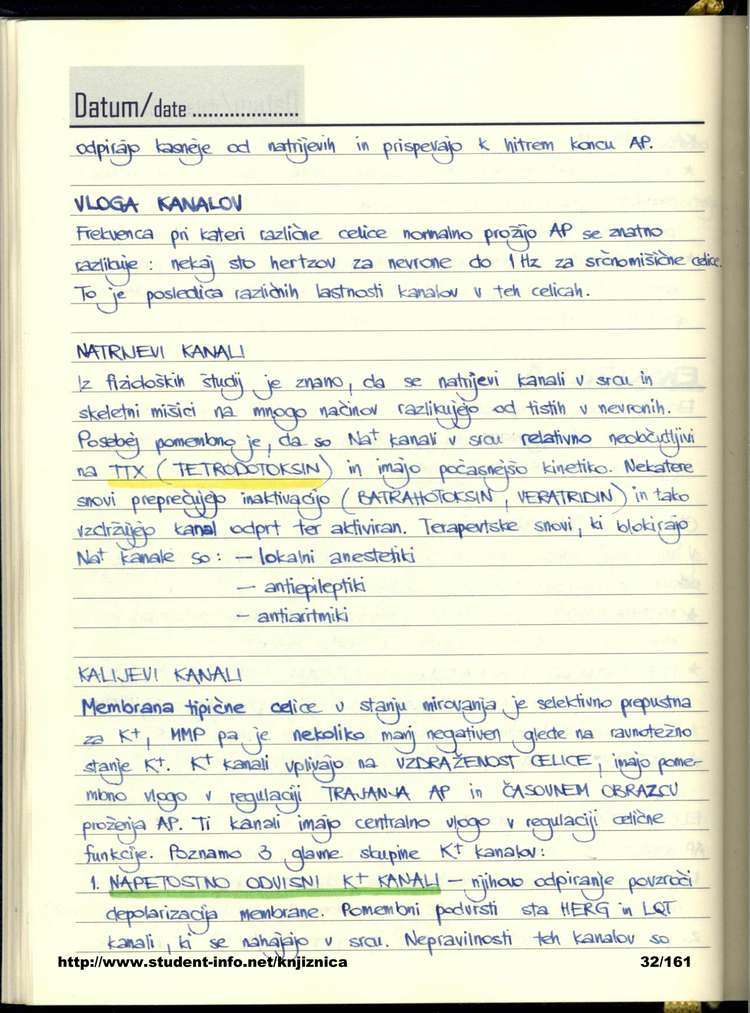 Datum/date ....................
odpirajo kasneje od natrijevih in prispevajo k hitrem koncu AP.
VLOGA KANALOV
Frekvenca pri kateri različne celice normalno prožijo AP se znatno
razlikuje : nekaj sto hertzov za nevrone do 1Hz za srčnomišične celice.
To je posledica različnih lastnosti kanalov v teh celicah.
NATRIJEVI KANALI
Iz fizioloških študij je znano, da se natrijevi kanali v srcu in
skeletni mišici na mnogo načinov razlikujejo od tistih v nevronih.
Posebej pomembno je, da so Na+ kanali v srcu relativno neobčutljivi
na TTX (TETRODOTOKSIN) in imajo počasnejšo kinetiko. Nekatere
snovi preprečujejo inaktivacijo (BATRAHOTOKSIN, VERATRIDIN) in tako
vzdržujejo kanal odprt ter aktiviran. Terapevtske snovi, ki blokirajo
Na+ kanale so : – lokalni anestetiki
– antiepileptiki
– antiaritmiki
KALIJEVI KANALI
Membrana tipične celice v stanju mirovanja je selektivno prepustna
za K+, MMP pa je nekoliko manj negativen glede na ravnotežno
stanje K+. K+ kanali vplivajo na VZDRAŽENOST CELICE, imajo pome-
mbno vlogo v regulaciji TRAJANJA AP in ČASOVNEM OBRAZCU
proženja AP. Ti kanali imajo centralno vlogo v regulaciji celične
funkcije. Poznamo 3 glavne skupine K+ kanalov :
1. NAPETOSTNO ODVISNI K+ KANALI – njihovo odpiranje povzroči
depolarizacija membrane. Pomembni podvrsti sta HERG in LQT
kanali, ki se nahajajo v srcu. Nepravilnosti teh kanalov so
http://www.student-info.net/knjiznica 32/161